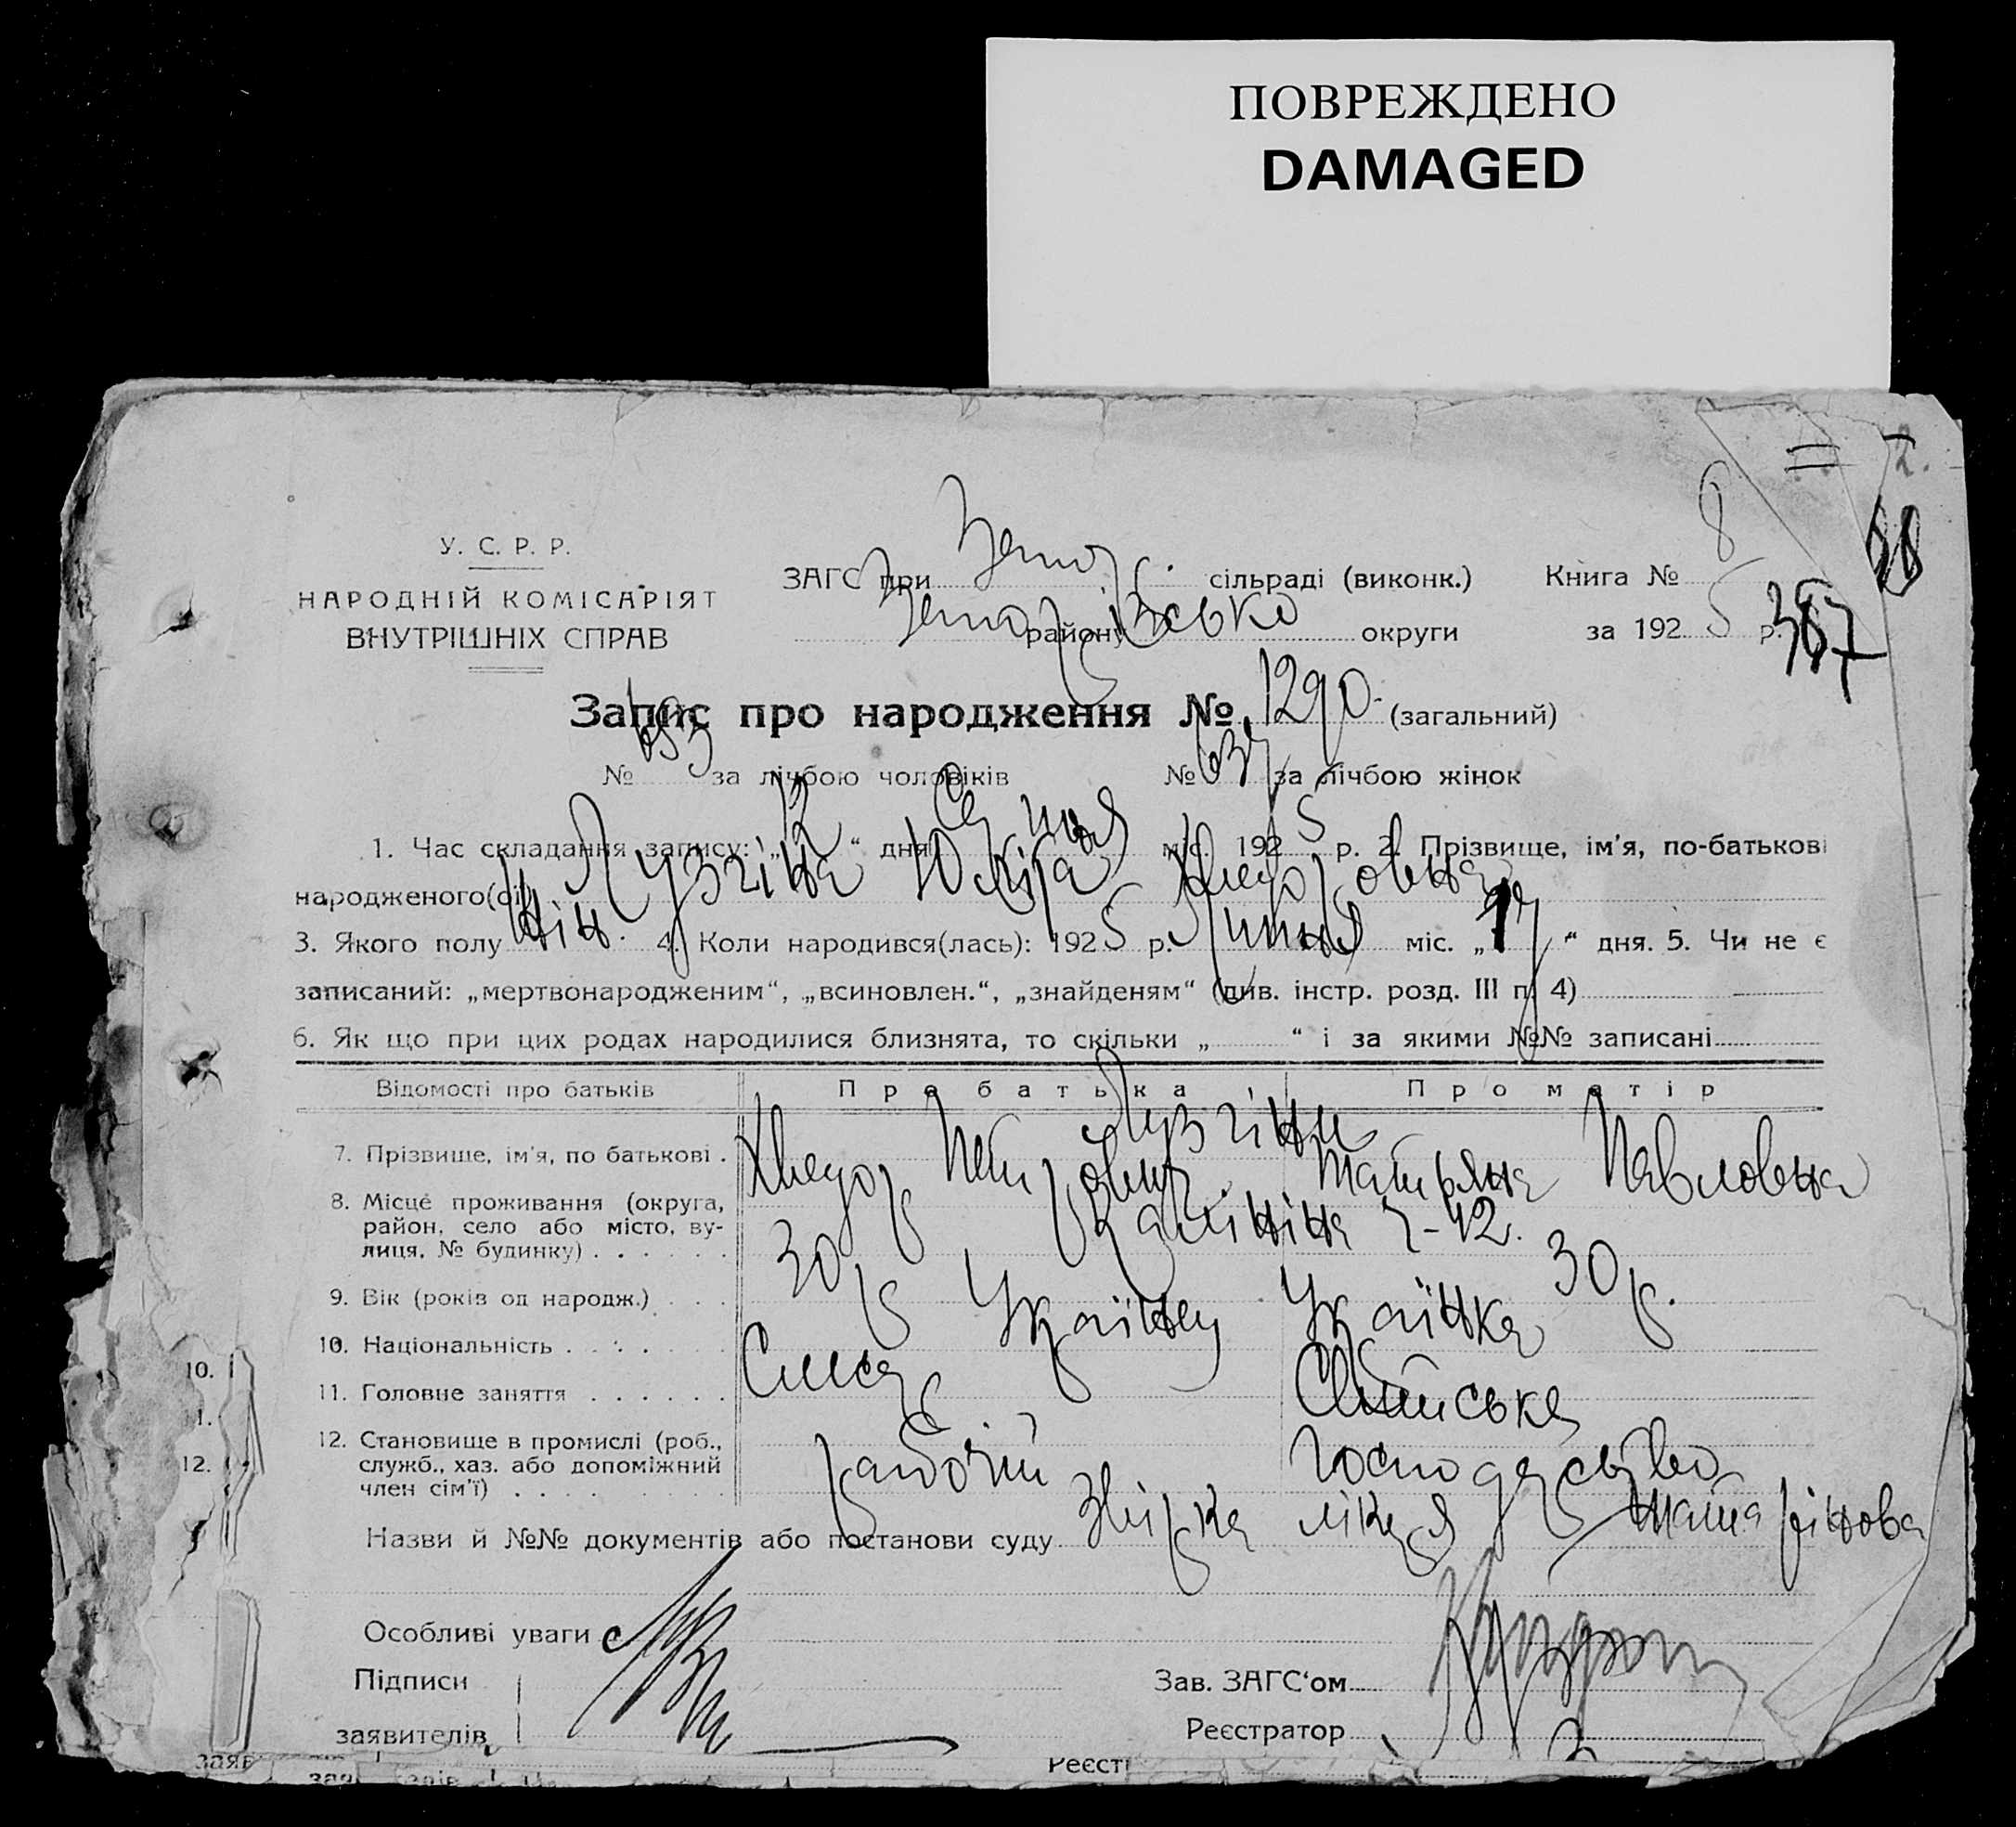 ПОВРЕЖДЕНО
DAMAGED
2.
У. С. Р. Р.
НАРОДНІЙ КОМІСАРІЯТ
ВНУТРІШНІХ СПРАВ
ЗАГС при сільраді (виконк.) Книга № 8
району округи за 192 5 р. 387
Запис про народження № 1290 (загальний)
№ 653 за лічбою чоловіків № 637 за лічбою жінок
1. Час складання запису: „12“ дня Серпня міс. 192 5 р. 2. Прізвище, ім'я, по-батькові
народженого(ої) Лузгіна Юліра Хведоровна
3. Якого полу Жін. 4. Коли народився(лась): 192 5 р. Липня міс. „ “ дня. 5. Чи не є
записаний: „мертвонародженим“, „всиновлен.“, „знайденям“ (див. інстр. розд. III п. 4)
6. Як що при цих родах народилися близнята, то скільки „ “ і за якими №№ записані
Відомості про батьків Про батька Про матір
Лузгіни
7. Прізвище, ім'я, по батькові . Хведор Петрович Татьяна Павловна
8. Місце проживання (округа,
район, село або місто, ву-
лиця, № будинку) . . . . . . Калініна 7-42.
9. Вік (років од народж.) . . . 30 р 30 р.
10. Національність . . . . . . Українец Українка
11. Головне заняття . . . . . . Слюсар Сімейське
12. Становище в промислі (роб.,
служб., хаз. або допоміжний
член сім'ї) . . . . . . . . рабочій господарство
Назви й №№ документів або постанови суду Звірка лікаря
Особливі уваги
Підписи
заявителів
Зав. ЗАГС'ом
Реєстратор
10.
1.
12.
заяв
Реєст